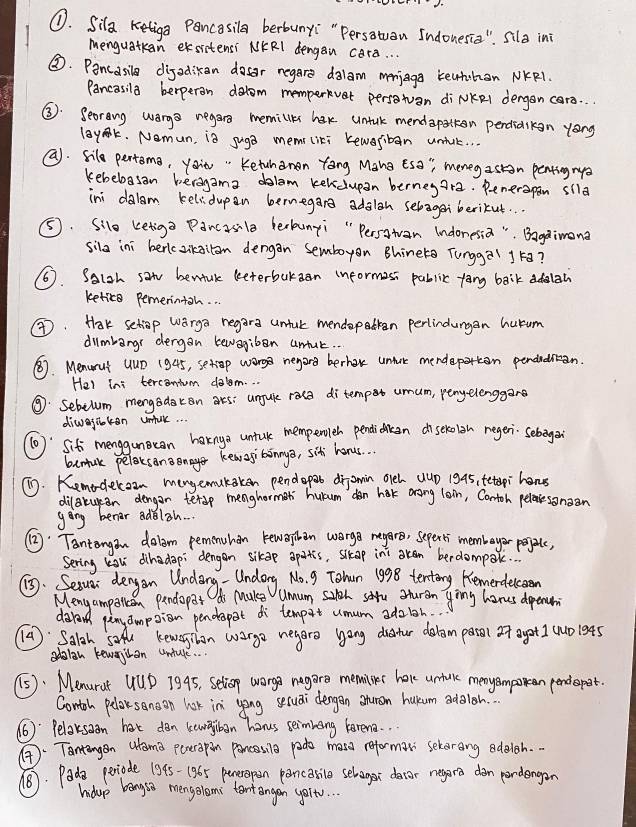 1. Sila ketiga Pancasila berbunyi "Persatuan Indonesia". Sila ini
menguatkan eksistensi NKRI dengan cara...
2. Pancasila dijadikan dasar negara dalam menjaga keutuhan NKRI.
Pancasila berperan dalam memperkuat persatuan di NKRI dengan cara...
3. Seorang warga negara memiliki hak untuk mendapatkan pendidikan yang
layak. Namun, ia juga memiliki kewajiban untuk...
4. Sila pertama, yaitu "Ketuhanan Yang Maha Esa", menegaskan pentingnya
kebebasan beragama dalam kehidupan bernegara. Penerapan sila
ini dalam kehidupan bernegara adalah sebagai berikut...
5. Sila ketiga Pancasila berbunyi "Persatuan Indonesia". Bagaimana
sila ini berkaitan dengan semboyan Bhineka Tunggal Ika?
6. Salah satu bentuk keterbukaan informasi publik yang baik adalah
ketika Pemerintah...
7. Hak setiap warga negara untuk mendapatkan perlindungan hukum
diimbangi dengan kewajiban untuk...
8. Menurut UUD 1945, setiap warga negara berhak untuk mendapatkan pendidikan.
Hal ini tercantum dalam...
9. Sebelum mengadakan aksi unjuk rasa di tempat umum, penyelenggara
diwajibkan untuk ...
10. Siti menggunakan haknya untuk memperoleh pendidikan di sekolah negeri. Sebagai
bentuk pelaksanaan kewajibannya, siti harus...
11. Kemerdekaan mengemukakan pendapat dijamin oleh UUD 1945, tetapi harus
dilakukan dengan tetap menghormati hukum dan hak orang lain, Contoh pelaksanaan
yang benar adalah...
12. Tantangan dalam pemenuhan kewajiban warga negara, seperti membayar pajak,
sering kali dihadapi dengan sikap apatis, sikap ini akan berdampak...
13. Sesuai dengan Undang-Undang No.9 Tahun 1998 tentang Kemerdekaan
Menyampaikan Pendapat di Muka Umum, salah satu aturan yang harus dipenuhi
dalam penyampaian pendapat di tempat umum adalah...
14. Salah satu kewajiban warga negara yang diatur dalam pasal 27 ayat 1 UUD 1945
adalah kewajiban untuk...
15. Menurut UUD 1945, setiap warga negara memiliki hak untuk menyampaikan pendapat.
Contoh pelaksanaan hak ini yang sesuai dengan aturan hukum adalah...
16. Pelaksaan hak dan kewajiban harus seimbang karena...
17. Tantangan utama penerapan pancasila pada masa reformasi sekarang adalah...
18. Pada periode 1945-1965 penerapan pancasila sebagai dasar negara dan pandangan
hidup bangsa mengalami tantangan yaitu...